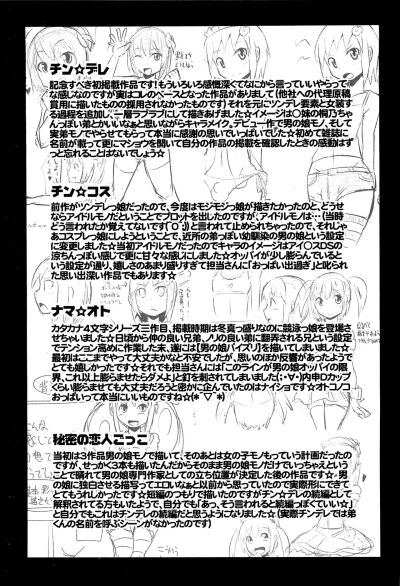 チン☆デレ
記念すべき初掲載作品です！もういろいろ感慨深くてなにから言っていいやらって
な感じなのですが実はコレのベースとなった作品がありまして(他社への代理原稿
賞用に描いたものの採用されなかったものです)それを元にツンデレ要素と女装す
る過程を追加し、一層ラブラブにして描きあげました☆イメージは〇妹の桐乃ちゃ
んっぽい弟とかいいなぁと思いながらキャラメイク。デビュー作で男の娘モノ、そして
実弟モノでやらせてもらって本当に感謝の思いでいっぱいでした☆初めて雑誌に
名前が載って更にマショウを開いて自分の作品の掲載を確認したときの感動はず
っと忘れることはないでしょう☆
チン☆コス
前作がツンデレっ娘だったので、今度はモジモジっ娘が描きたかったのと、どうせ
ならアイドルモノだということでプロットを出したのですが、アイドルモノは…(当時
どう言われたか覚えてないです(゚O゚;))と言われて止められちゃったので、それじゃ
あコスプレっ娘にしようということで、近所の弟っぽい幼馴染の男の娘という設定
に変更しました☆当初アイドルモノだったのでキャラのイメージはアイ〇スDSの
涼ちんっぽい感じで更に甘々な感じにしました☆オッパイが少し膨らんでいると
いう設定が通り、嬉しさのあまり盛りすぎて担当さんに「おっぱい出過ぎ」と叱られ
た思い出深い作品でもあります☆
ナマ☆オト
カタカナ4文字シリーズ三作目、掲載時期は冬真っ盛りなのに競泳っ娘を登場さ
せちゃいました☆日頃から仲の良い兄弟、ノリの良い弟に翻弄される兄という設定
でテンション高めに作業した末、遂には【男の娘パイズリ】を描いてしまいました☆
最初はここまでやって大丈夫かなと不安でしたが、思いのほか反響があったようで
とても嬉しかったです☆それでも担当さんには「このラインが男の娘オッパイの限
界、これ以上膨らませたらダメよ」と釘を刺されてしまいました(;・∀・)内申Dカップく
らい膨らませても大丈夫だろうと密かに企んでいたのはナイショです☆オトコノコ
おっぱいって本当にいいものですね☆(*´▽`*)
秘密の恋人ごっこ
当初は3作品男の娘モノで描いて、そのあとは女の子モノもっていう計画だったの
ですが、せっかく3本も描いたんだからそのまま男の娘モノだけでいっちゃえという
ことで晴れて男の娘専門作家としての立ち位置が決定した後の作品です☆男
の娘に独白させる描写ってエロいなぁと以前から思っていたので実際形にできて
とてもうれしかったです☆短編のつもりで描いたのですがチン☆デレの続編として
解釈されてる方もいたようで、自分でも「あっ、そう言われると続編っぽくていい☆」
と自分でもこれはチンデレの続編だと思うようになりました☆(実際チンデレでは弟
くんの名前を呼ぶシーンがなかったのです)